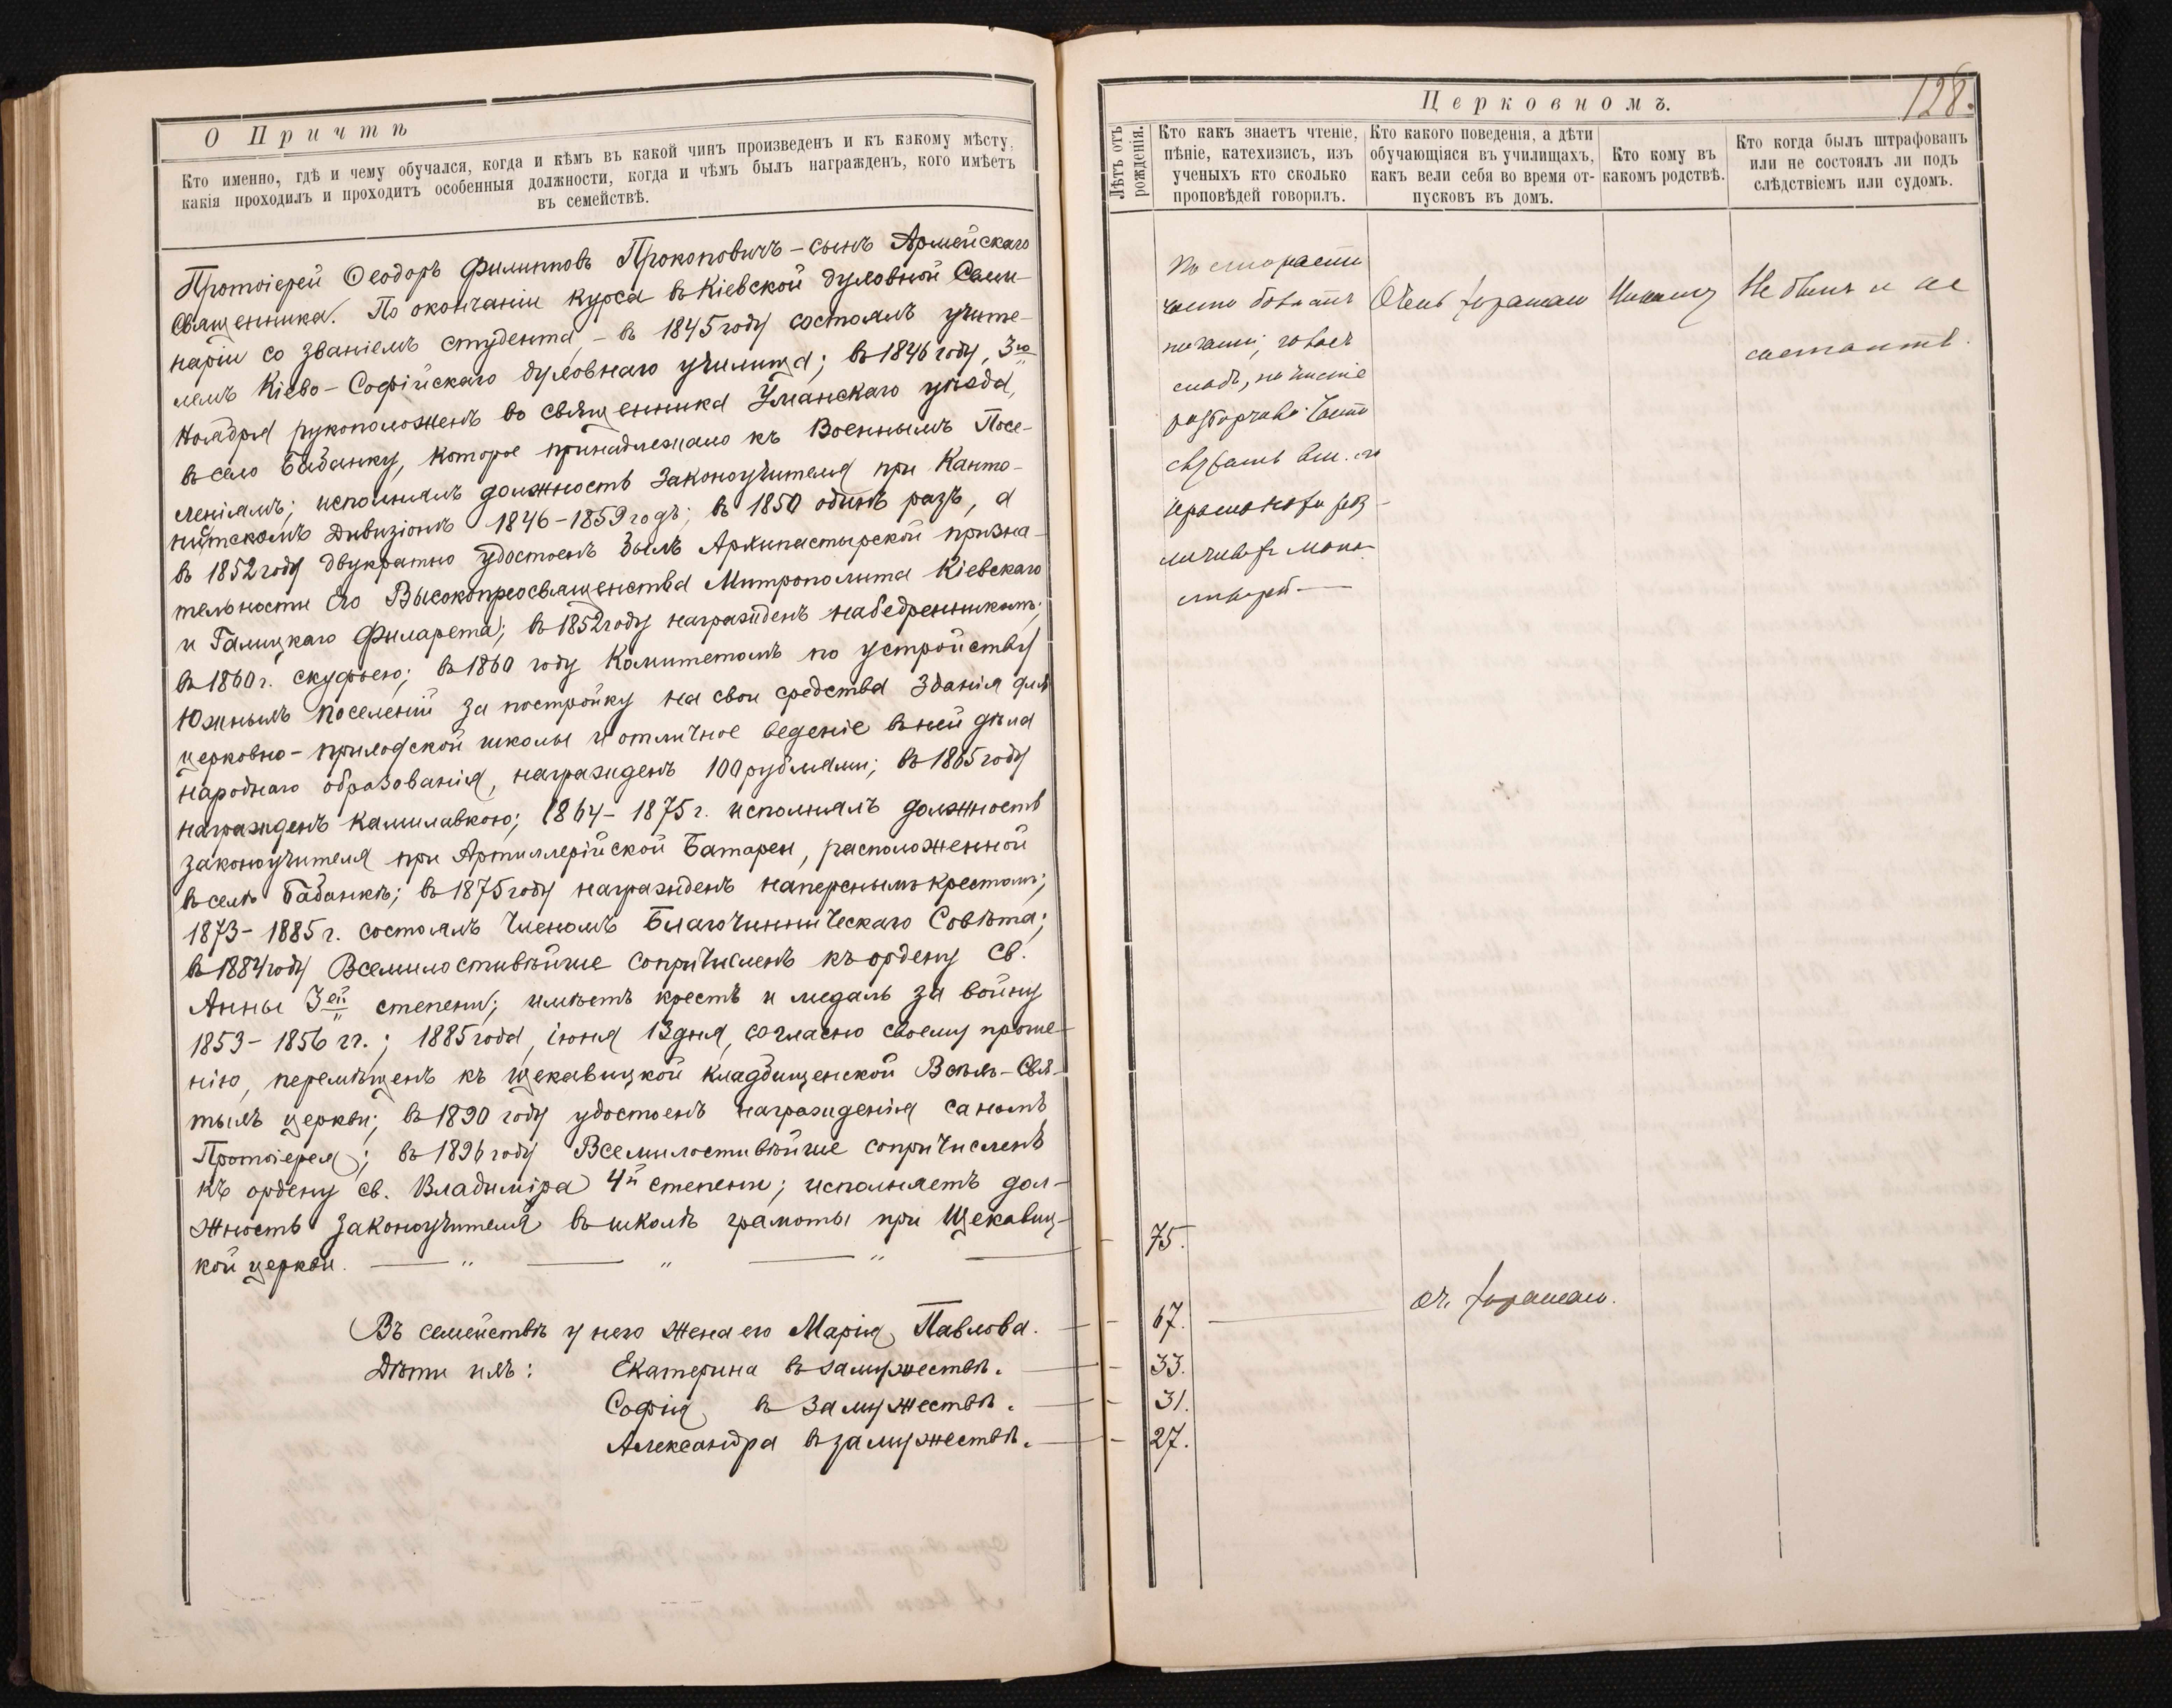 О Причтѣ
Кто именно, гдѣ и чему обучался, когда и кѣмъ въ какой чинъ произведенъ и къ какому мѣсту,
какія проходилъ и проходитъ особенныя должности, когда и чѣмъ былъ награжденъ, кого имѣетъ
въ семействѣ.
Протоіерей Ѳеодоръ Филипповъ Прокоповичъ – сынъ Армейскаго
Священника. По окончаніи курса въ Кіевской духовной Семи-
наріи со званіемъ студента, – въ 1845 году состоялъ учите-
лемъ Кіево-Софійскаго духовнаго училища; въ 1846 году, 3го
Ноября рукоположенъ во священника Уманскаго уѣзда,
въ село Бабанку, которое принадлежало къ Военнымъ Посе-
леніямъ; исполнялъ должность Законоучителя при Канто-
нистскомъ Дивизіонѣ 1846–1859 годъ; въ 1850 одинъ разъ, а
въ 1852 году двукратно удостоенъ былъ Архипастырской призна-
тельности Его Высокопреосвященства Митрополита Кіевскаго
и Галицкаго Филарета; въ 1852 году награжденъ набедренникомъ;
въ 1860 г. скуфьею; въ 1860 году Комитетомъ по устройству
Южныхъ поселеній за постройку на свои средства зданія для
церковно-приходской школы и отличное веденіе въ ней дѣла
народнаго образованія, награжденъ 100 рублями; въ 1865 году
награжденъ камилавкою; 1864–1875 г. исполнялъ должность
законоучителя при Артиллерійской Батареи, расположенной
въ селѣ Бабанкѣ; въ 1875 году награжденъ наперснымъ крестомъ;
1873–1885 г. состоялъ Членомъ Благочинническаго Совѣта;
въ 1884 году Всемилостивѣйше сопричисленъ къ ордену Св.
Анны 3ей степени; имѣетъ крестъ и медаль за войну
1853–1856 гг.; 1885 года, іюня 13 дня, согласно своему проше-
нію, перемѣщенъ къ Щекавицкой кладбищенской Всѣхъ-Свя-
тыхъ церкви; въ 1890 году удостоенъ награжденія саномъ
Протоіерея; въ 1896 году Всемилостивѣйше сопричисленъ
къ ордену св. Владиміра 4й степени; исполняетъ дол-
жность законоучителя въ школѣ грамоты при Щекавиц-
кой церкви. — „ — „ — „ —
Въ семействѣ у него жена его Марія Павлова.
Дѣти ихъ: Екатерина въ замужествѣ.
Софія въ замужествѣ.
Александра въ замужествѣ.
128.
Церковномъ.
Лѣтъ отъ рожденія.
Кто какъ знаетъ чтеніе, пѣніе, катехизисъ, изъ ученыхъ кто сколько проповѣдей говорилъ.
Кто какого поведенія, а дѣти обучающіяся въ училищахъ, какъ вели себя во время отпусковъ въ домъ.
Кто кому въ какомъ родствѣ.
Кто когда былъ штрафованъ или не состоялъ ли подъ слѣдствіемъ или судомъ.
по старости
часто
Очень хорошаго Никому Не былъ и не
состоитъ.
75.
67. — оч. хорошаго.
33.
31.
27.